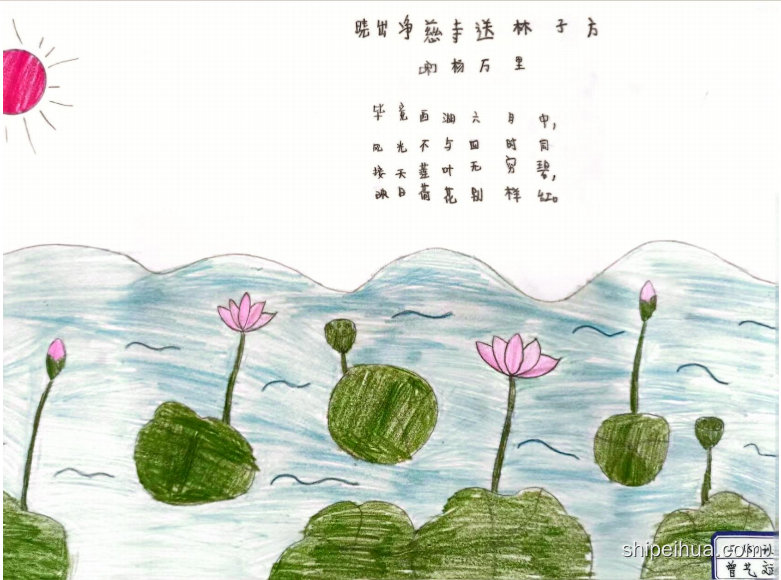 晓出净慈寺送林子方
[宋]杨万里
毕竟西湖六月中,
风光不与四时同
接天莲叶无穷碧,
映日荷花别样红。
shipeihua.com
曾艺